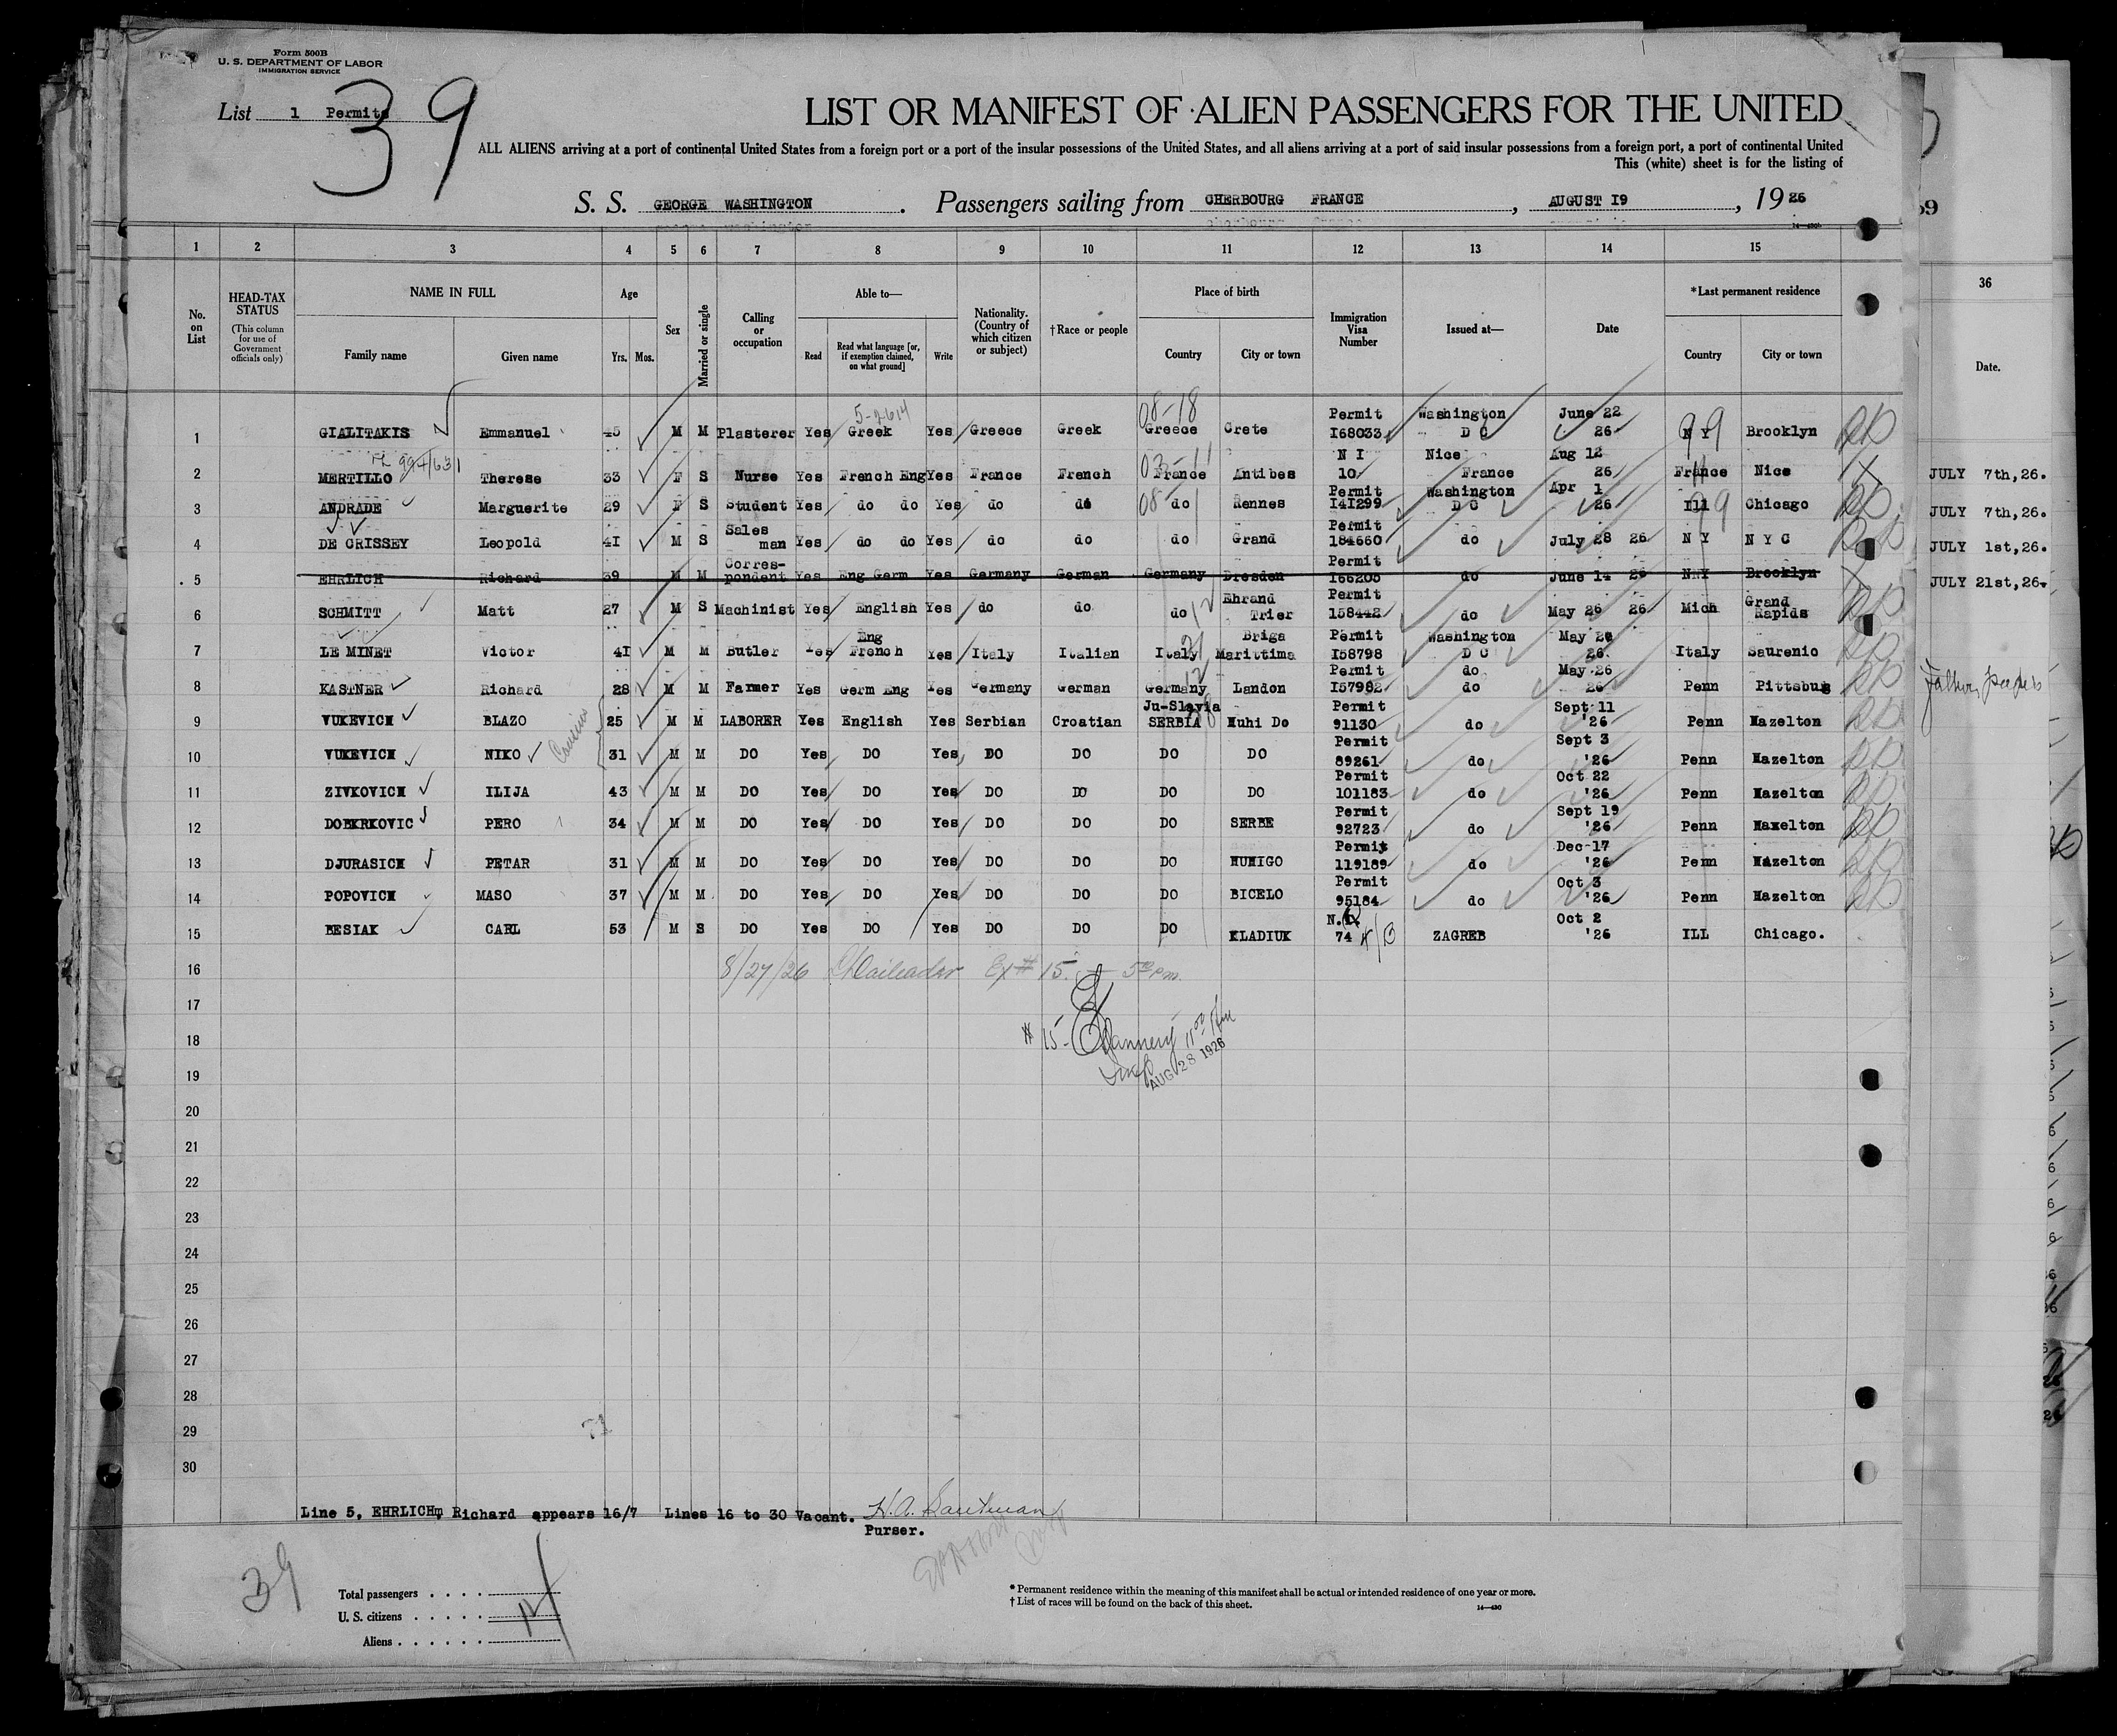 Form 500B
U. S. DEPARTMENT OF LABOR
IMMIGRATION SERVICE
List 1 Permits
39
LIST OR MANIFEST OF ALIEN PASSENGERS FOR THE UNITED
ALL ALIENS arriving at a port of continental United States from a foreign port or a port of the insular possessions of the United States, and all aliens arriving at a port of said insular possessions from a foreign port, a port of continental United
This (white) sheet is for the listing of
S. S. GEORGE WASHINGTON . Passengers sailing from CHERBOURG FRANCE , AUGUST I9 , 19 26
1 2 3 4 5 6 7 8 9 10 11 12 13 14 15
36
No. on List
HEAD-TAX STATUS (This column for use of Government officials only)
NAME IN FULL
Family name
Given name
Age
Yrs. Mos.
Sex
Married or single
Calling or occupation
Able to—
Read
Read what language [or, if exemption claimed, on what ground]
Write
Nationality. (Country of which citizen or subject)
†Race or people
Place of birth
Country
City or town
Immigration Visa Number
Issued at—
Date
*Last permanent residence
Country
City or town
Date.
5-2614
08-18
1 GIALITAKIS Emmanuel 45 M M Plasterer Yes Greek Yes Greece Greek Greece Crete Permit I68033 Washington D C June 22 26 N Y Brooklyn
994/631
03-11
2 MERTILLO Therese 33 F S Nurse Yes French Eng Yes France French France Antibes N I 10 Nice France Aug 12 26 France Nice JULY 7th,26.
3 ANDRADE Marguerite 29 F S Student Yes do do Yes do do do Rennes Permit I4I299 Washington D C Apr 1 26 Ill Chicago JULY 7th,26.
4 DE CRISSEY Leopold 4I M S Sales man Yes do do Yes do do do Grand Permit 184660 do July 28 26 N Y N Y C JULY 1st,26.
5 EHRLICH Richard 39 M M Corres- pondent Yes Eng Germ Yes Germany German Germany Dresden Permit I66205 do June 14 26 NNY Brooklyn JULY 21st,26.
6 SCHMITT Matt 27 M S Machinist Yes English Yes do do do Ehrand Trier Permit 158442 do May 26 26 Mich Grand Rapids
7 LE MINET Victor 4I M M Butler Yes Eng French Yes Italy Italian Italy Briga Marittima Permit I58798 Washington D C May 26 26 Italy Saurenio
8 KASTNER Richard 28 M M Farmer Yes Germ Eng Yes Germany German Germany Landon Permit I57982 do do May 26 26 Penn Pittsbug
Cousins
9 VUKEVICH BLAZO 25 M M LABORER Yes English Yes Serbian Croatian Ju-Slavia SERBIA Muhi Do Permit 91130 do Sept 11 '26 Penn Hazelton
10 VUKEVICH NIKO 31 M M DO Yes DO Yes DO DO DO DO Permit 89261 do Sept 3 '26 Penn Hazelton
11 ZIVKOVICH ILIJA 43 M M DO Yes DO Yes DO DO DO DO Permit 101183 do Oct 22 '26 Penn Hazelton
12 DOBKRKOVIC PERO 34 M M DO Yes DO Yes DO DO DO SERBE Permit 92723 do Sept 19 '26 Penn Haxelton
13 DJURASICH PETAR 31 M M DO Yes DO Yes DO DO DO HUHIGO Permit 119189 do Dec 17 '26 Penn Hazelton
14 POPOVICH MASO 37 M M DO Yes DO Yes DO DO DO BICELO Permit 95184 do Oct 3 '26 Penn Hazelton
15 BESIAK CARL 53 M S DO Yes DO Yes DO DO DO KLADIUK 74 ZAGREB Oct 2 '26 ILL Chicago.
16 8/27/26 Ex # 15 5 pm.
17
18 # 15-
AUG 28 1926
19
20
21
22
23
24
25
26
27
28
29
30
Line 5, EHRLICH, Richard appears 16/7 Lines 16 to 30 Vacant.
Purser.
39
Total passengers
U. S. citizens
Aliens
14
* Permanent residence within the meaning of this manifest shall be actual or intended residence of one year or more.
† List of races will be found on the back of this sheet.
14—430